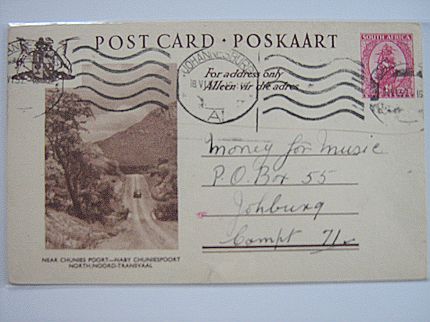 POST CARD · POSKAART
SOUTH AFRICA
JOHANNESBURG
For address only
Alleen vir die adres
A1
Money for Music
P.O. Box 55
Johburg
Compt 71
NEAR CHUNIES POORT—NABY CHUNIESPOORT
NORTH/NOORD-TRANSVAAL